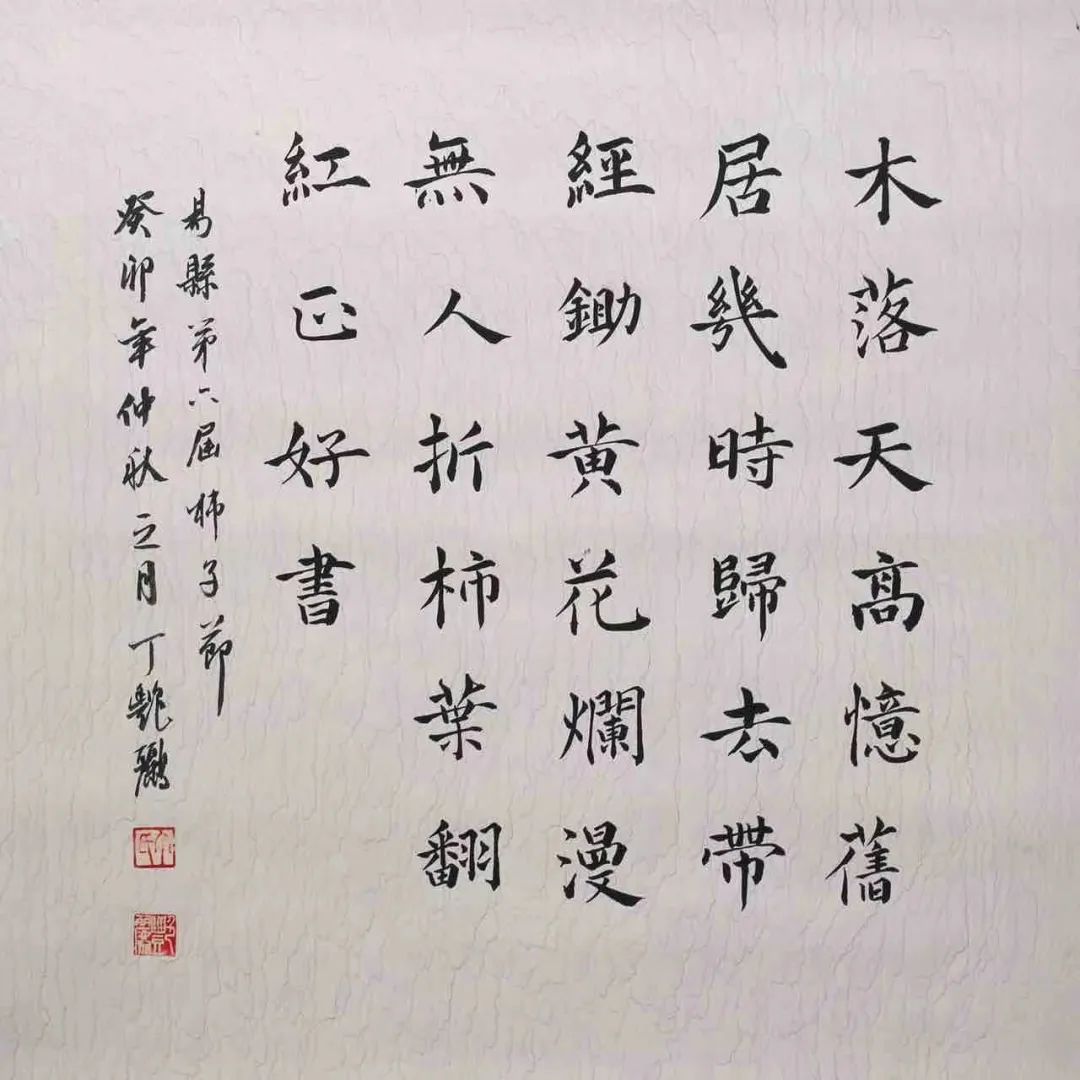 木落天高憶舊
居幾時歸去帶
經鋤黄花爛漫
無人折柿葉翻
紅正好書
易縣第六届柿子節
癸卯年仲秋之月丁艷